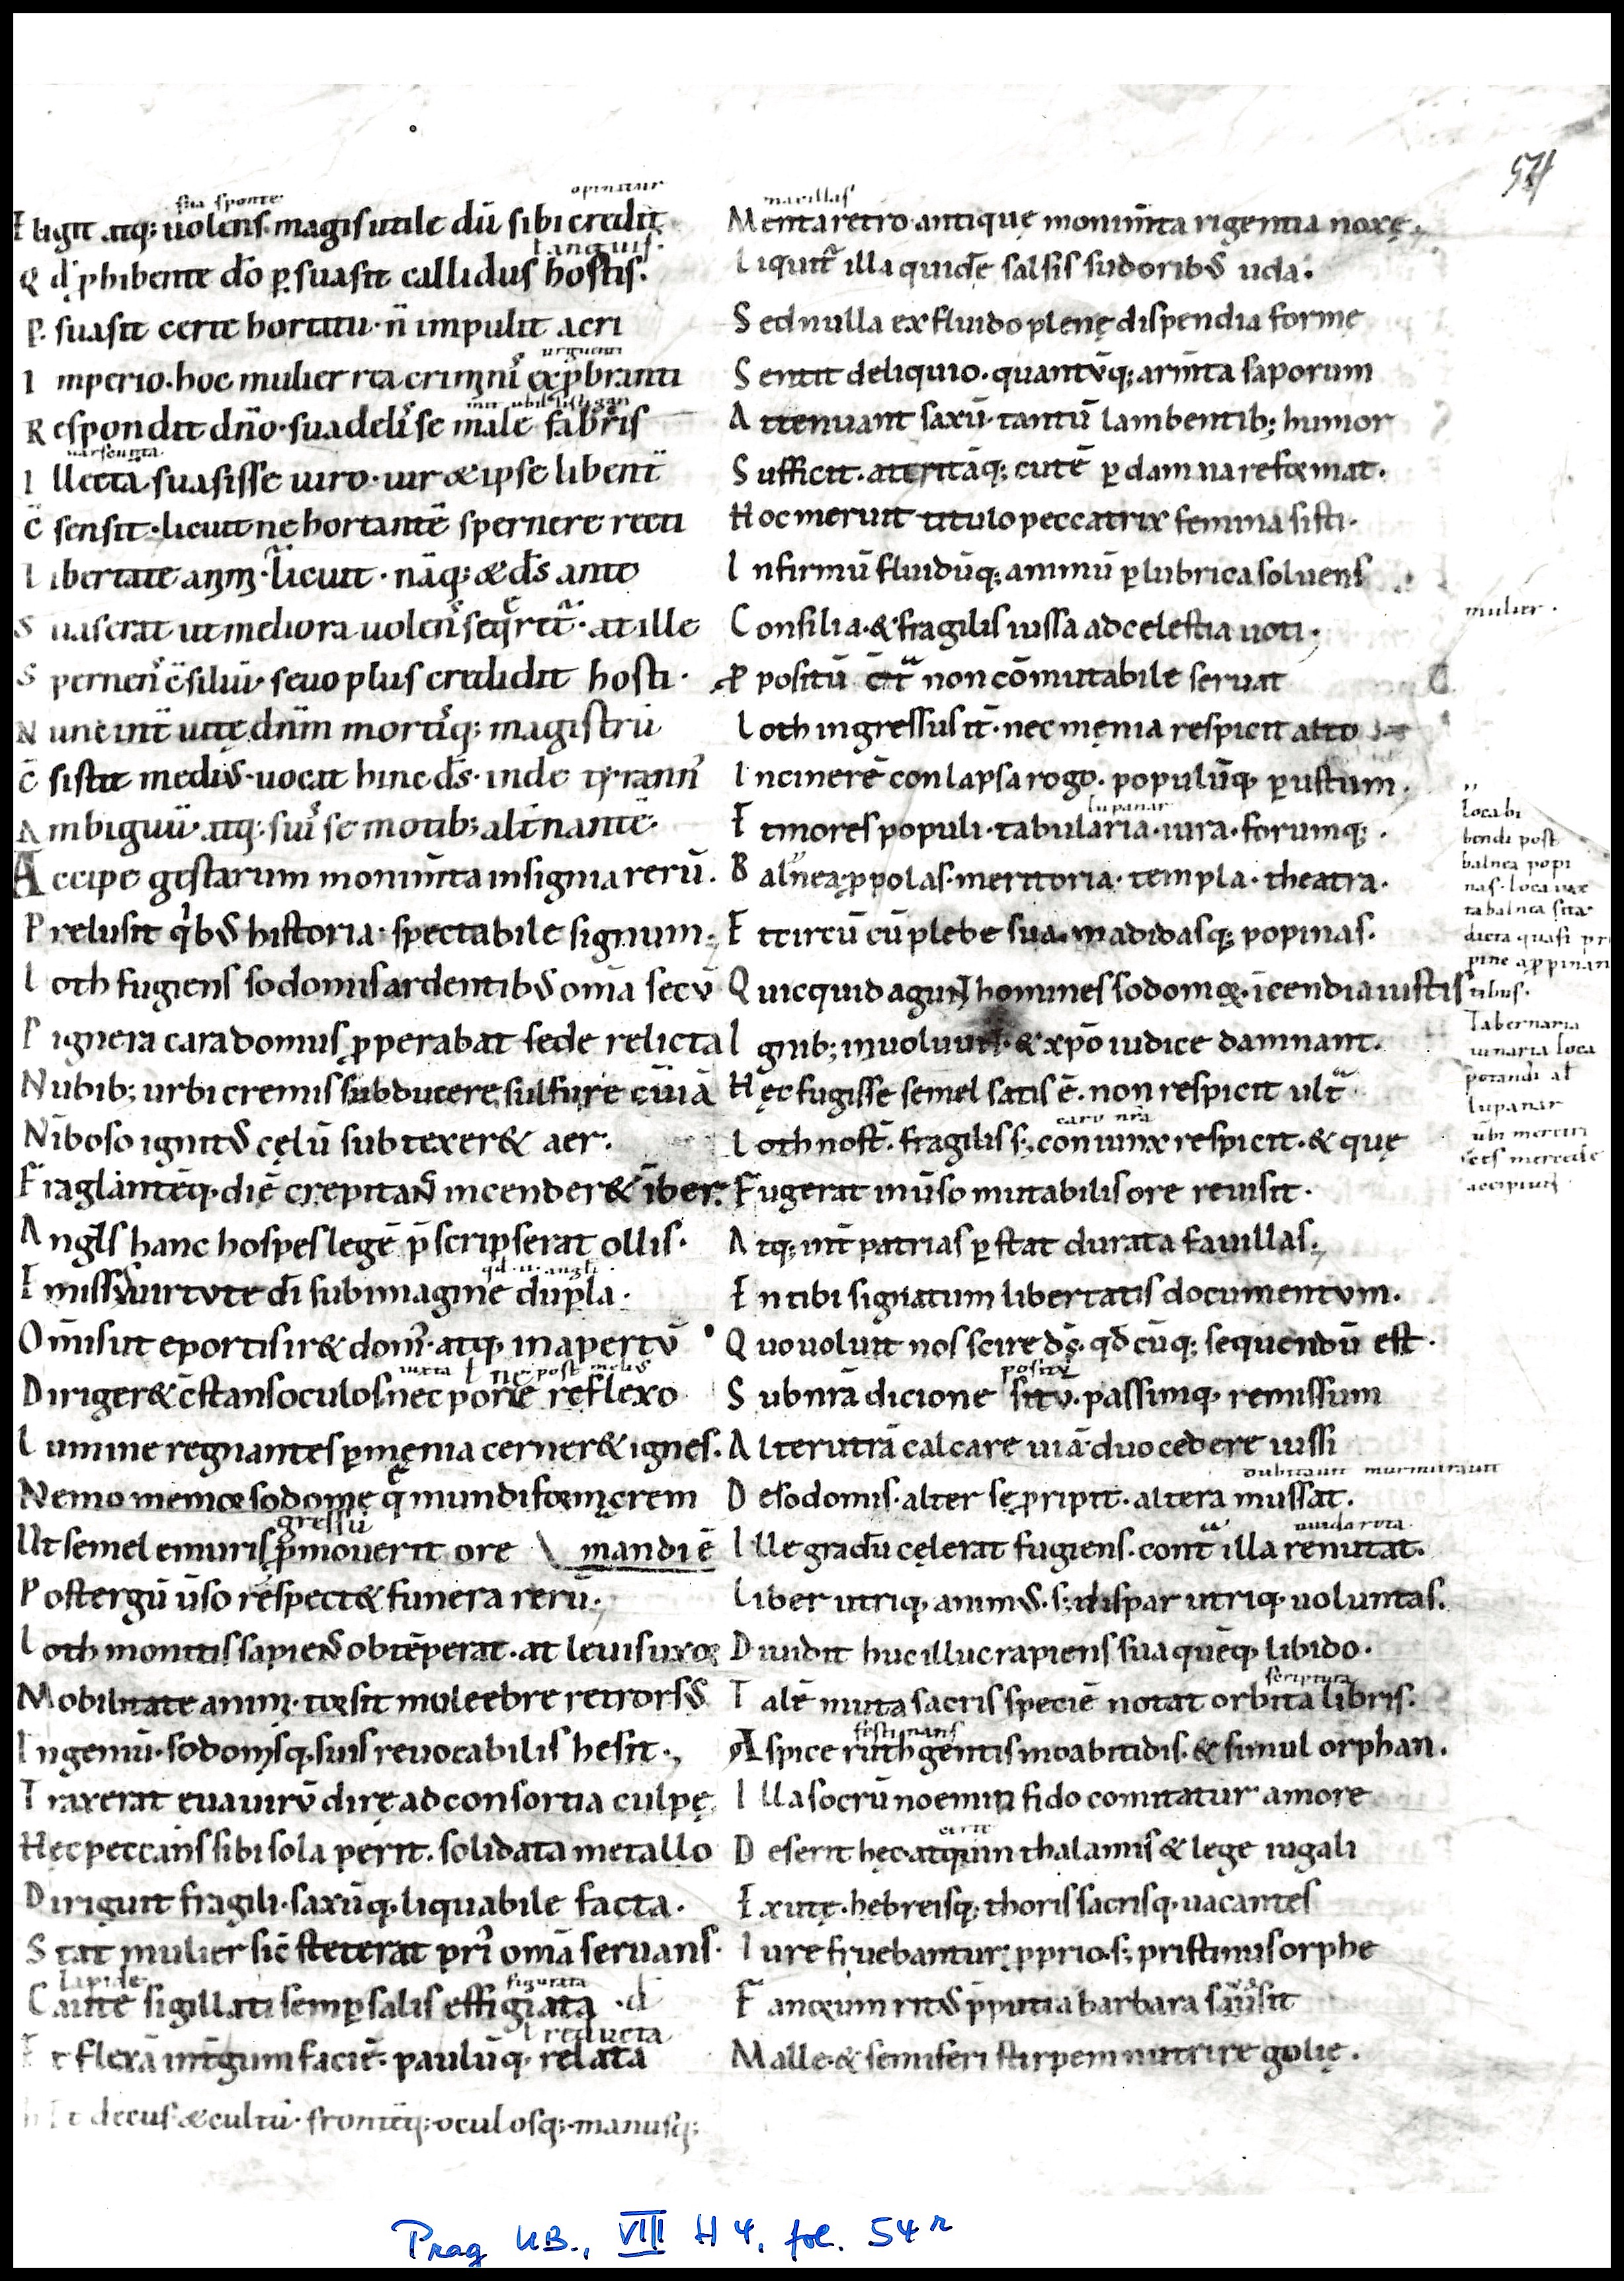 54
sua sponte opinatur
Elegit atq; uolens. magis utile dū sibi credit
l anguis.
Q d ꝓhibente dō ꝑsuasit callidus hostis.
P suasit certe hortatu. n̄ impulit acri
urguenti
I mperio. hoc mulier rea criminis exprobranti
R espondit dn̄o. suadelis se male fabris
I llectā suasisse uiro. uir & ipse libent
C̄ sensit. licuit ne hortantē spernere recti
L ibertate animi. licuit. nāq; & ds ante
S uaserat ut meliora uolens seqret. at ille
S pernens c̄siliū. seuo plus credidit hosti.
N unc int uitę dn̄m mortisq; magistrū
C̄ sistit medius. uocat hinc ds. inde tyranns
A mbiguū atq; suis se motib; alt̄nantē.
A ccipe gestarum monim̄ta insignia rerū.
P relusit qibus historia. spectabile signum.
L oth fugiens sodomis ardentibus om̄a secū
P ignera cara domus ꝓperabat sede relicta
N ubib; urbicremis subducere sulfure cū iā
N iboso ignitus cęlū subtexer& aer.
F raglantēq; diē crepitans incender& īber.
A ngls hanc hospes legē p̄scripserat ollis.
qd. ii. angli
E missus uirtute dī sub imagine dupla.
O m̄is ut e portis ir& doms. atq; in apertū
iuxta l ne post melius
D iriger& c̄stans oculos. nec pone reflexo
L umine regnantes ꝑ męnia cerner& ignes.
N emo memor sodomę quę mundi forma crem
gressū
Ut semel e muris ꝓmouerit ore \ mandi ē
P ostergū ūso respect& funera rerū.
L oth monitis sapiens obtēperat. at leuis uxor
M obilitate animi. torsit muliebre retrorsus
I ngeniū. sodomisq; suis reuocabilis hesit.
T raxerat eua uirū dirę ad consortia culpę
H ęc peccans sibi sola perit. solidata metallo
D iriguit fragili. saxūq; liquabile facta.
S tat mulier sic̄ steterat pri om̄a seruans.
lapide figurata
C aute sigillati semꝑ salis effigiata . d
l reducta
E t flexā in t̄gum faciē. paulūq; relata
Et decus & cultū. frontēq; oculosq; manusq;
maxillas
M enta retro. antiquę monim̄ta rigentia noxę.
L iquit illa quidē salsis sudoribus uda.
S ed nulla ex fluido plenę dispendia formę
S entit deliquio. quantūq; arm̄ta saporum
A ttenuant saxū. tantū lambentib; humor
S ufficit. atritāq; cutē ꝑ damna reformat.
H oc meruit titulo peccatrix femina sisti.
I nfirmū fluidūq; animū ꝑ lubrica soluens
C onsilia. & fragilis iussa ad celestia uoti.
mulier.
P positū cͭra non cōmutabile seruat
L oth ingressus it. nec męnia respicit alto
I n cinerē conlapsa rogo. populūq; ꝑustum.
lupanar
E t mores populi. tabularia. iura. forumq;.
B alnea. ꝓpolas. meritoria. templa. theatra.
E t circū cū plebe sua. madidasq; popinas.
Q uicquid agunt homines sodomorum. īcendia iustis
I gnib; inuoluunt. & xp̄o iudice damnant.
H ęc fugisse semel satis ē. non respicit ultra
caro nr̄a
L oth nost̄. fragilis s; coniunx respicit. & quę
F ugerat inūso mutabilis ore reuisit.
A tq; int patrias ꝑstat durata fauillas.
E n tibi signatum libertatis documentum.
Q uo uoluit nos scire ds. qd cūq; sequendū est.
posita
S ub nr̄a dicione sitū. passimq; remissum
A lterutrā calcare uiā. duo cedere iussi
dubitauit murmurauit
D e sodomis. alter se ꝓripit. altera mussat.
I lle gradū cęlerat fugiens. cont illa renutat.
L iber utriq; animus. s; dispar utriq; uoluntas.
D iuidit huc illuc rapiens sua quēq; libido.
scriptura
T alē muta sacris speciē notat orbita libris.
festinans
A spice ruth gentis moabitidis. & simul orphan.
I lla socrū noemin fido comitatur amore
certe
D eserit hęc. atquin thalamis & lege iugali
E xutę. hebreisq; thoris sacrisq; uacantes
I ure fruebantur. ꝓprio. s; pristinus orphe
F anorum ritus p̄putia barbara suasit
M alle. & semiferi stirpem nutrire golię.
loca bi
bendi post
balnea popi
nas. loca iux
ta balnea sita.
dicta quasi pr
pine a ꝓpinan
tibus.
Tabernaria
uinaria loca
potandi al
lupanar
ubi meretri
ces mercede
accipiunt
Prag UB., VIII H 4, fol. 54r